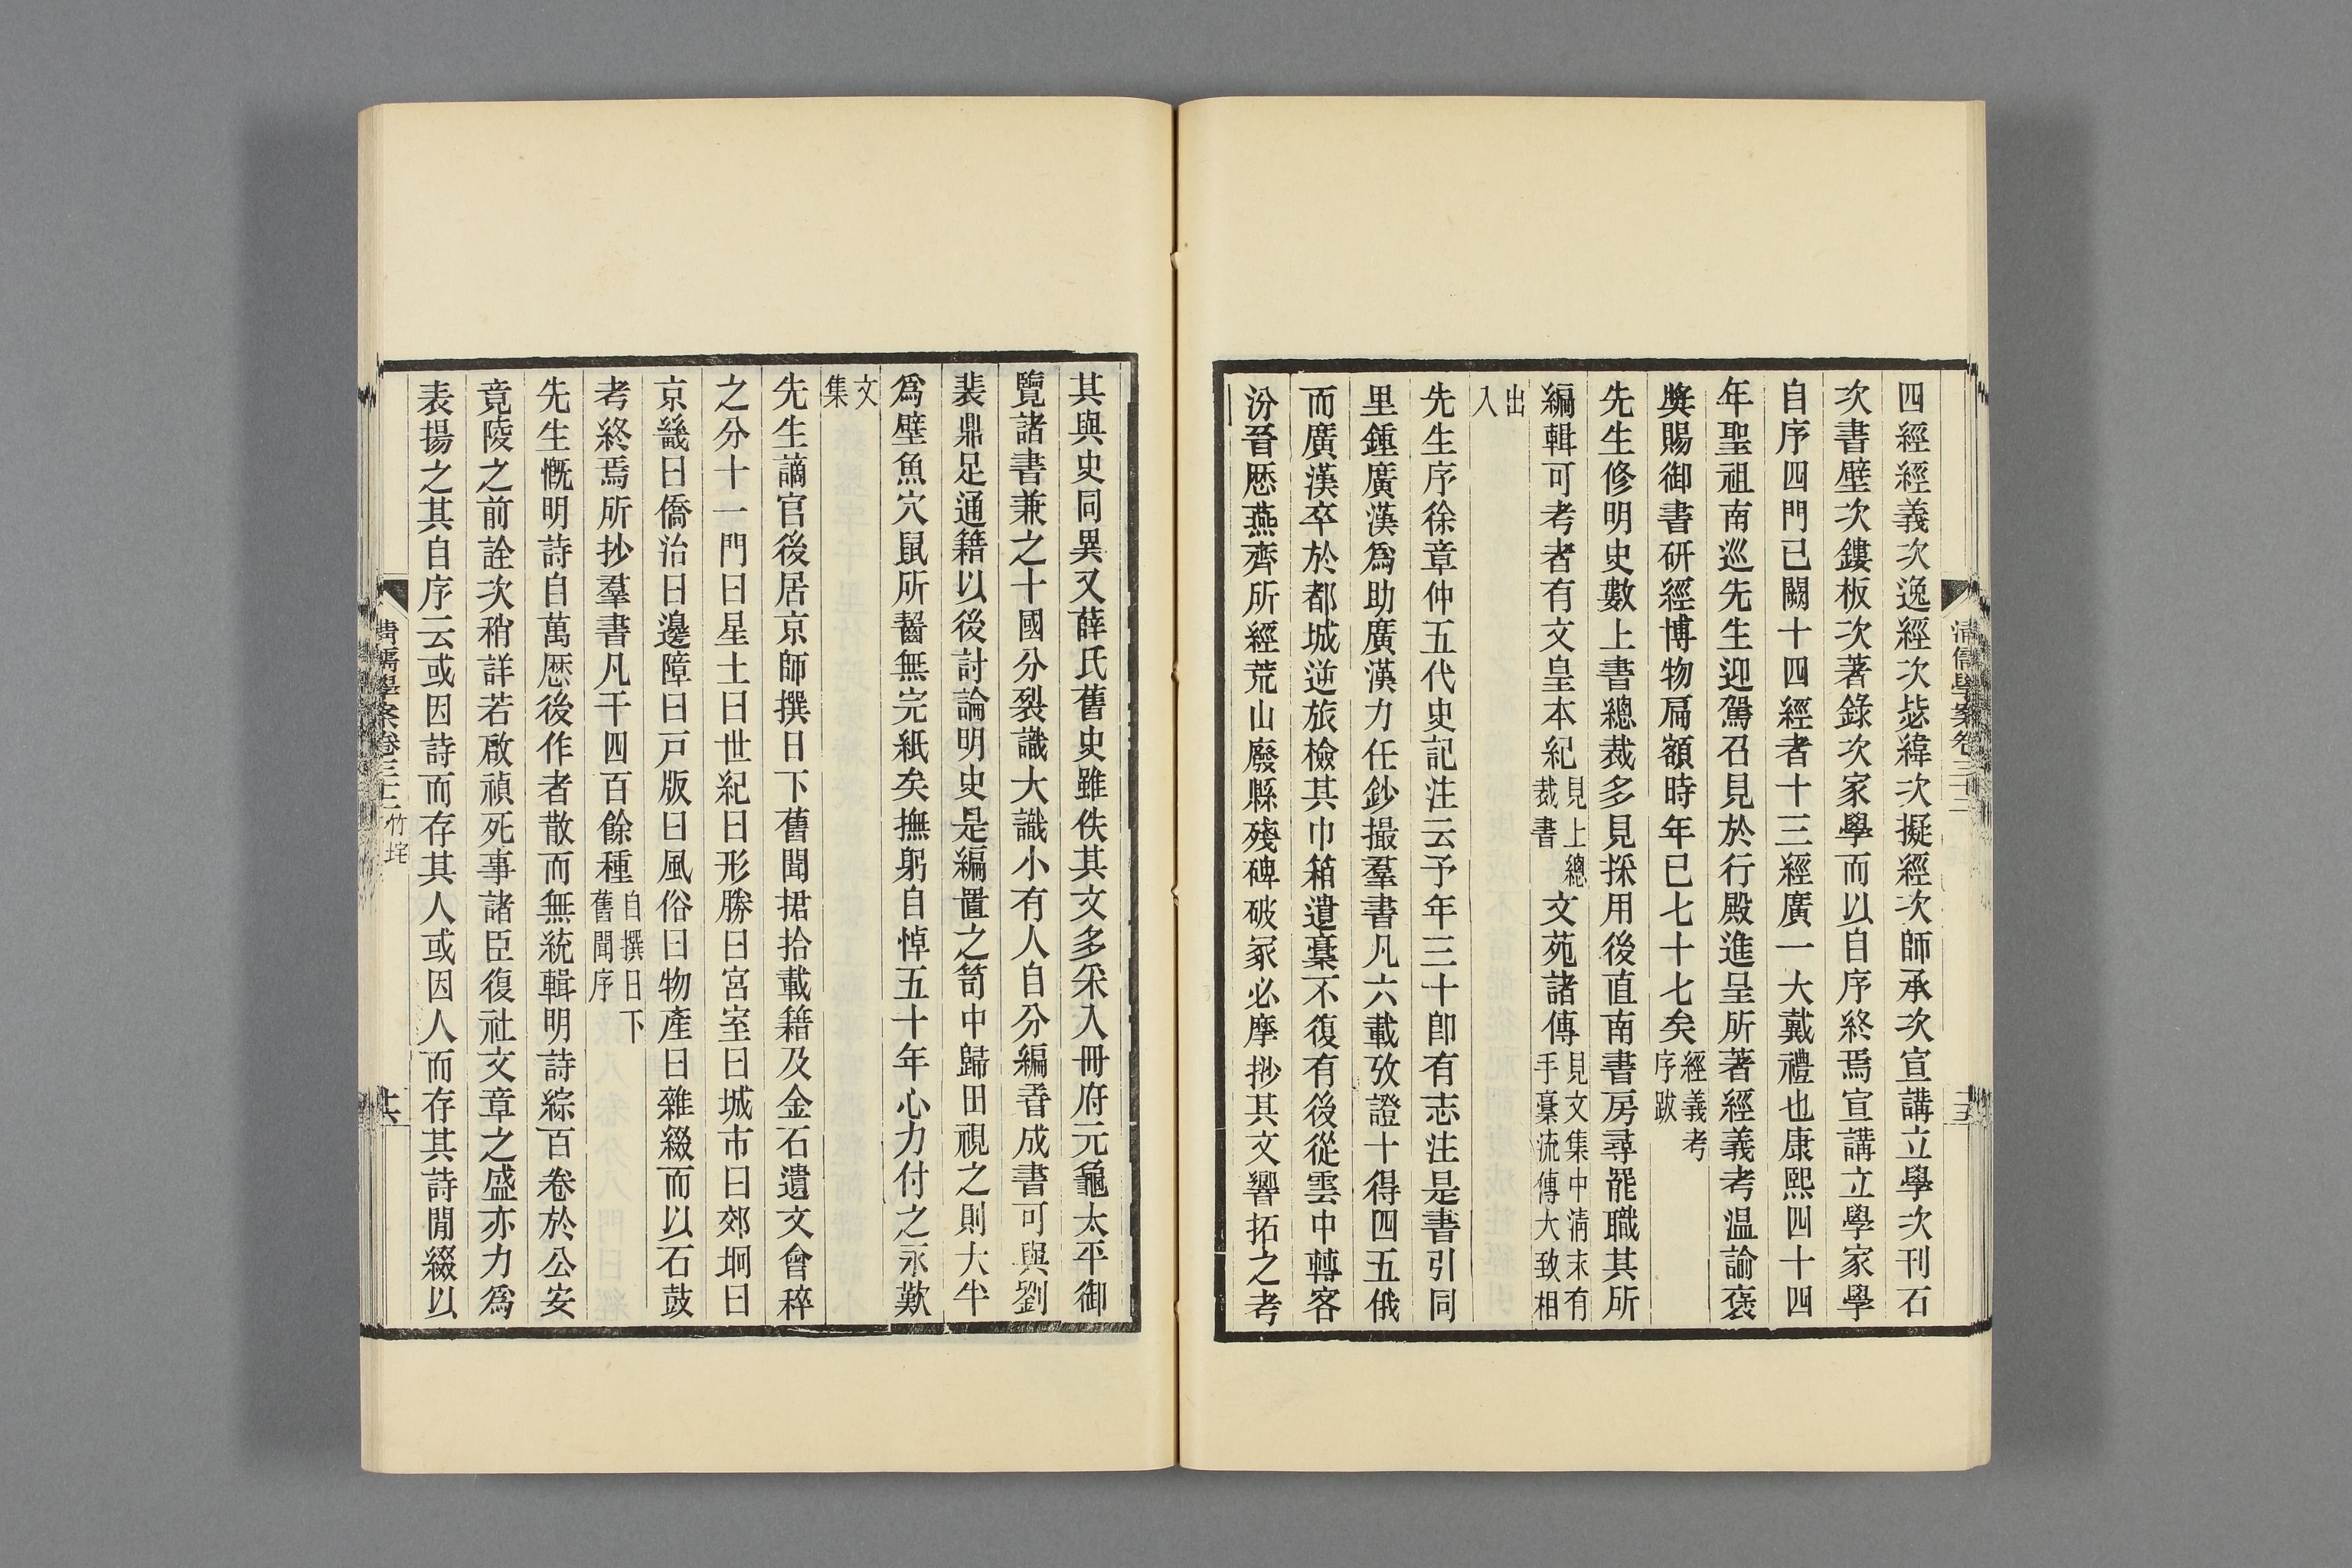 四經經義次逸經次毖緯次擬經次師承次宣講立學次刊石
次書壁次鏤板次著錄次家學而以自序終焉宣講立學家學
自序四門已闕十四經者十三經廣一大戴禮也康熙四十四
年聖祖南巡先生迎駕召見於行殿進呈所著經義考温諭褒
獎賜御書研經博物扁額時年已七十七矣經義考序跋
先生修明史數上書總裁多見採用後直南書房尋罷職其所
編輯可考者有文皇本紀見上總裁書文苑諸傳見文集中淸末有手稾流傳大致相
出入
先生序徐章仲五代史記注云予年三十卽有志注是書引同
里鍾廣漢爲助廣漢力任鈔撮羣書凡六載攷證十得四五俄
而廣漢卒於都城逆旅檢其巾箱遺稾不復有後從雲中轉客
汾晉歷燕齊所經荒山廢縣殘碑破冢必摩挱其文響拓之考
其與史同異又薛氏舊史雖佚其文多采入冊府元龜太平御
覽諸書兼之十國分裂識大識小有人自分編晉成書可與劉
裴鼎足通籍以後討論明史是編置之笥中歸田視之則大半
爲壁魚穴鼠所齧無完紙矣撫躬自悼五十年心力付之永歎
文集
先生謫官後居京師撰日下舊聞捃拾載籍及金石遺文會稡
之分十一門曰星土曰世紀曰形勝曰宮室曰城市曰郊坰曰
京畿曰僑治曰邊障曰戸版曰風俗曰物產曰雜綴而以石鼓
考終焉所抄羣書凡千四百餘種自撰日下舊聞序
先生慨明詩自萬歷後作者散而無統輯明詩綜百卷於公安
竟陵之前詮次稍詳若啟禎死事諸臣復社文章之盛亦力爲
表揚之其自序云或因詩而存其人或因人而存其詩閒綴以
清儒學案卷三十二 竹垞 十六